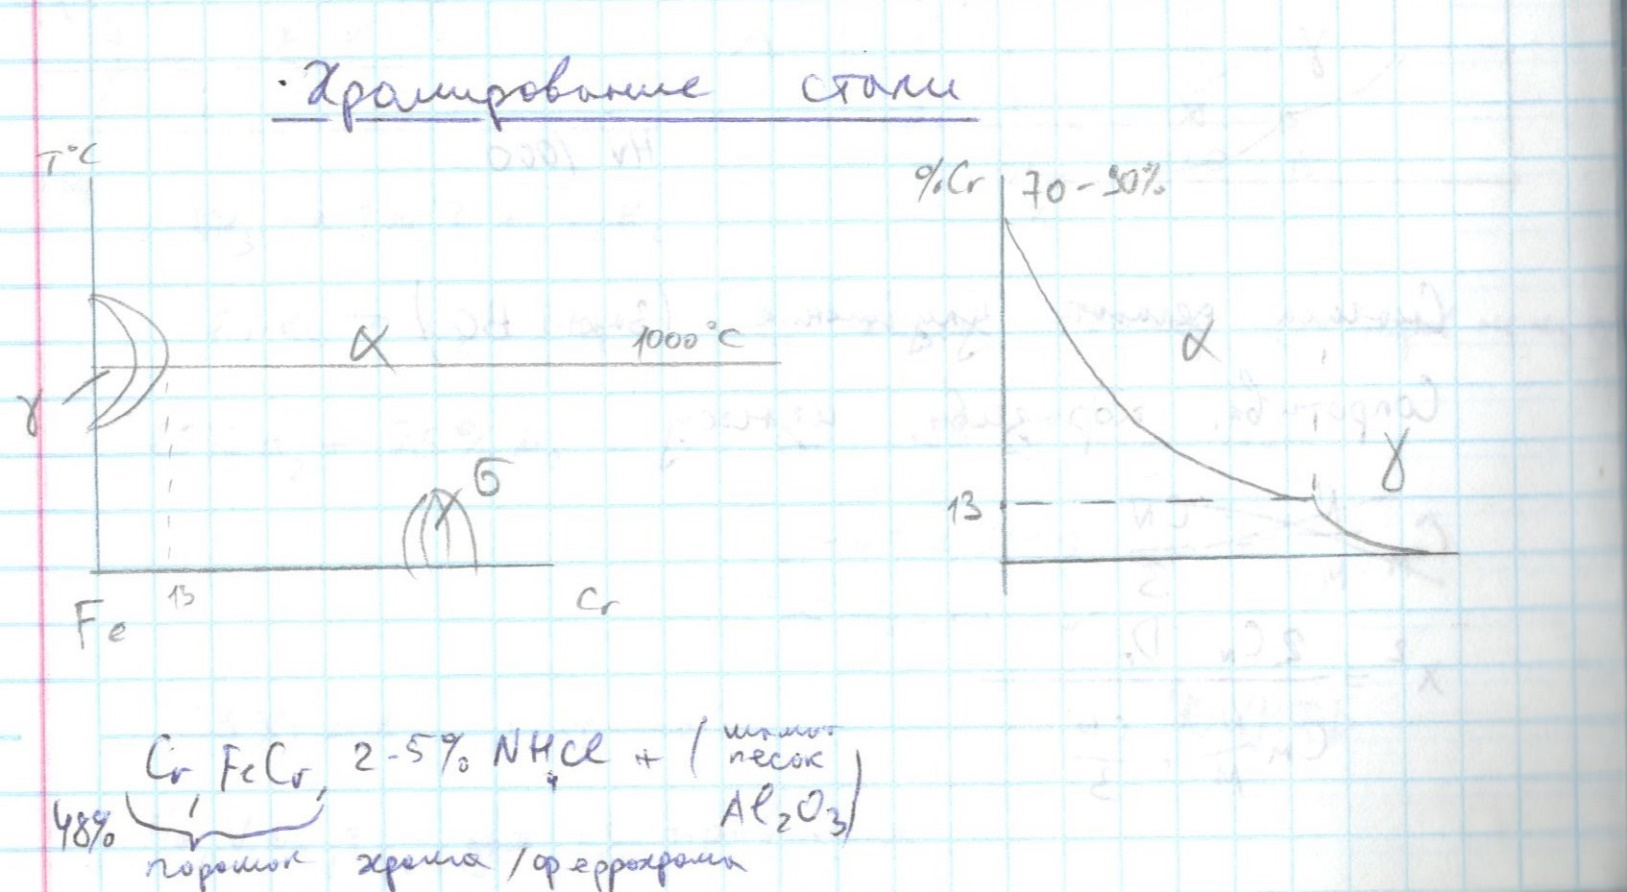 Хромирование стали
T°C
%Cr 70-90%
α 1000°C
α
γ
γ
σ
13
13
Fe
Cr
Cr, FeCr, 2-5% NH4Cl + (шамот
песок
Al2O3)
48%
порошок хрома / феррохрома